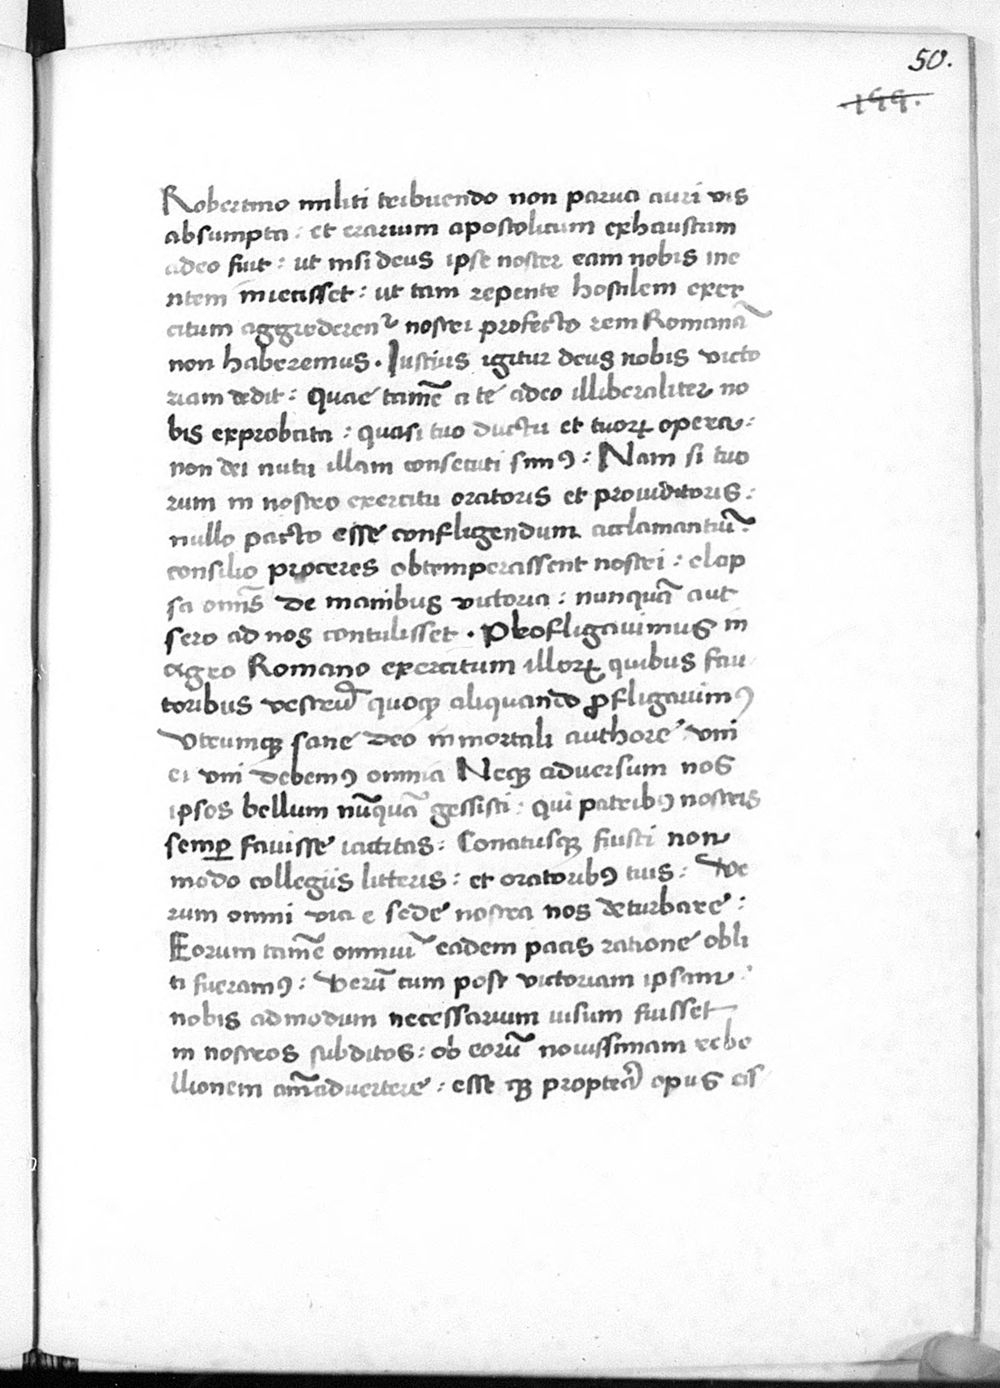 50.
155.
Robertino militi tribuendo non parua auri vis
absumpta : et erarium apostolicum exhaustum
adeo fuit : ut nisi deus ipse noster eam nobis me
ntem miecisset : ut tam repente hostilem exer
citum aggrederenꝰ nostri profecto rem Romanā
non haberemus . Iustius igitur deus nobis victo
riam dedit : Quae tamē a te adeo illiberaliter no
bis exprobata : quasi tuo ductu et tuoꝝ opera :
non dei nutu illam consecuti simꝰ : Nam si tuo
rum in nostro exercitu oratoris et prouiditoris :
nullo pacto esse confligendum acclamantiū :
consilio proceres obtemperassent nostri : elap
sa omīs de manibus victoria : nunquā aut
sero ad nos contulisset . Profligauimus in
agro Romano exercitum illoꝝ quibus fau
toribus vestrū quoqꝫ aliquando ꝓfligauimꝰ
Vtrumqꝫ sane deo immortali authore : vni
ei vni debemꝰ omnia Neqꝫ aduersum nos
ipsos bellum nūquā gessisti : qui patribꝰ nostris
semꝑ fauisse iactitas : Conatusqꝫ fuisti non
modo collegiis litteris : et oratoribꝰ tuis : Ve
rum omni via e sede nostra nos deturbare :
Eorum tamē omniū eadem pacis ratione obli
ti fueramꝰ : Verū cum post victoriam ipsam :
nobis admodum necessarium uisum fuisset
in nostros subditos : ob eorū nouissimam rebe
llionem aīaduertere : esse qꝫ propterea opus eis